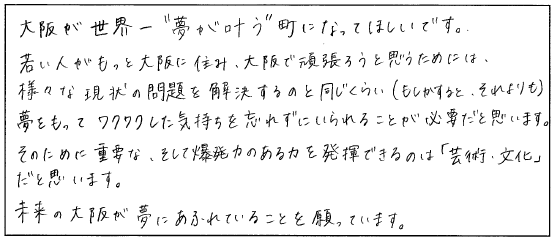 大阪が世界一"夢が叶う"町になってほしいです。
若い人がもっと大阪に住み、大阪で頑張ろうと思うためには、
様々な現状の問題を解決するのと同じくらい(もしかすると、それよりも)
夢をもってワクワクした気持ちを忘れずにいられることが必要だと思います。
そのために重要な、そして爆発力のある力を発揮できるのは「芸術・文化」
だと思います。
未来の大阪が夢にあふれていることを願っています。